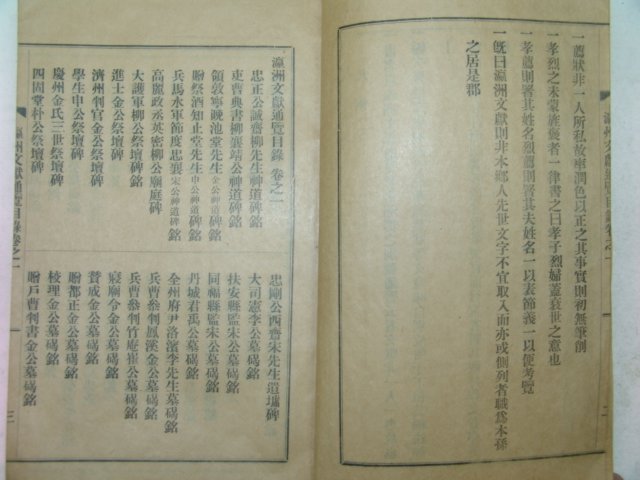 一薦狀非一人所私故率潤色以正之其事實則初無筆創
一孝烈之未蒙旌褒者一律書之曰孝子烈婦蓋衰世之意也
一孝薦則署其姓名烈薦則署其夫姓名一以表節義一以便考覽
一旣曰瀛洲文獻則非本鄕人先世文字不宜取入而亦或側列者職爲本孫
之居是郡
二
瀛洲文獻通覽目錄卷之一
瀛洲文獻通覽目錄 卷之一
忠正公誠齋柳先生神道碑銘
吏曹典書柳襄靖公神道碑銘
領敦寧晩池堂先生金公神道碑銘
贈祭酒知止堂先生申公神道碑銘
兵馬水軍節度忠襄宋公神道碑銘
高麗政丞英密柳公廟庭碑
大護軍柳公祭壇碑銘
進士金公祭壇碑銘
濟州判官金公祭壇碑
學生申公祭壇碑
慶州金氏三世祭壇碑
四固堂朴公祭壇碑
忠剛公西齋宋先生遺墟碑
大司憲李公墓碣銘
扶安縣監朱公墓碣銘
同福縣監朱公墓碣銘
丹城君禹公墓碣銘
全州府尹洛濱李先生墓碣銘
兵曹參判鳳溪金公墓碣銘
兵曹參判竹庵崔公墓碣銘
寢廟令金公墓碣銘
贊成金公墓碣銘
贈都正金公墓碣銘
校理金公墓碣銘
贈戶曹判書金公墓碣銘
瀛洲文獻通覽目錄卷之一
三